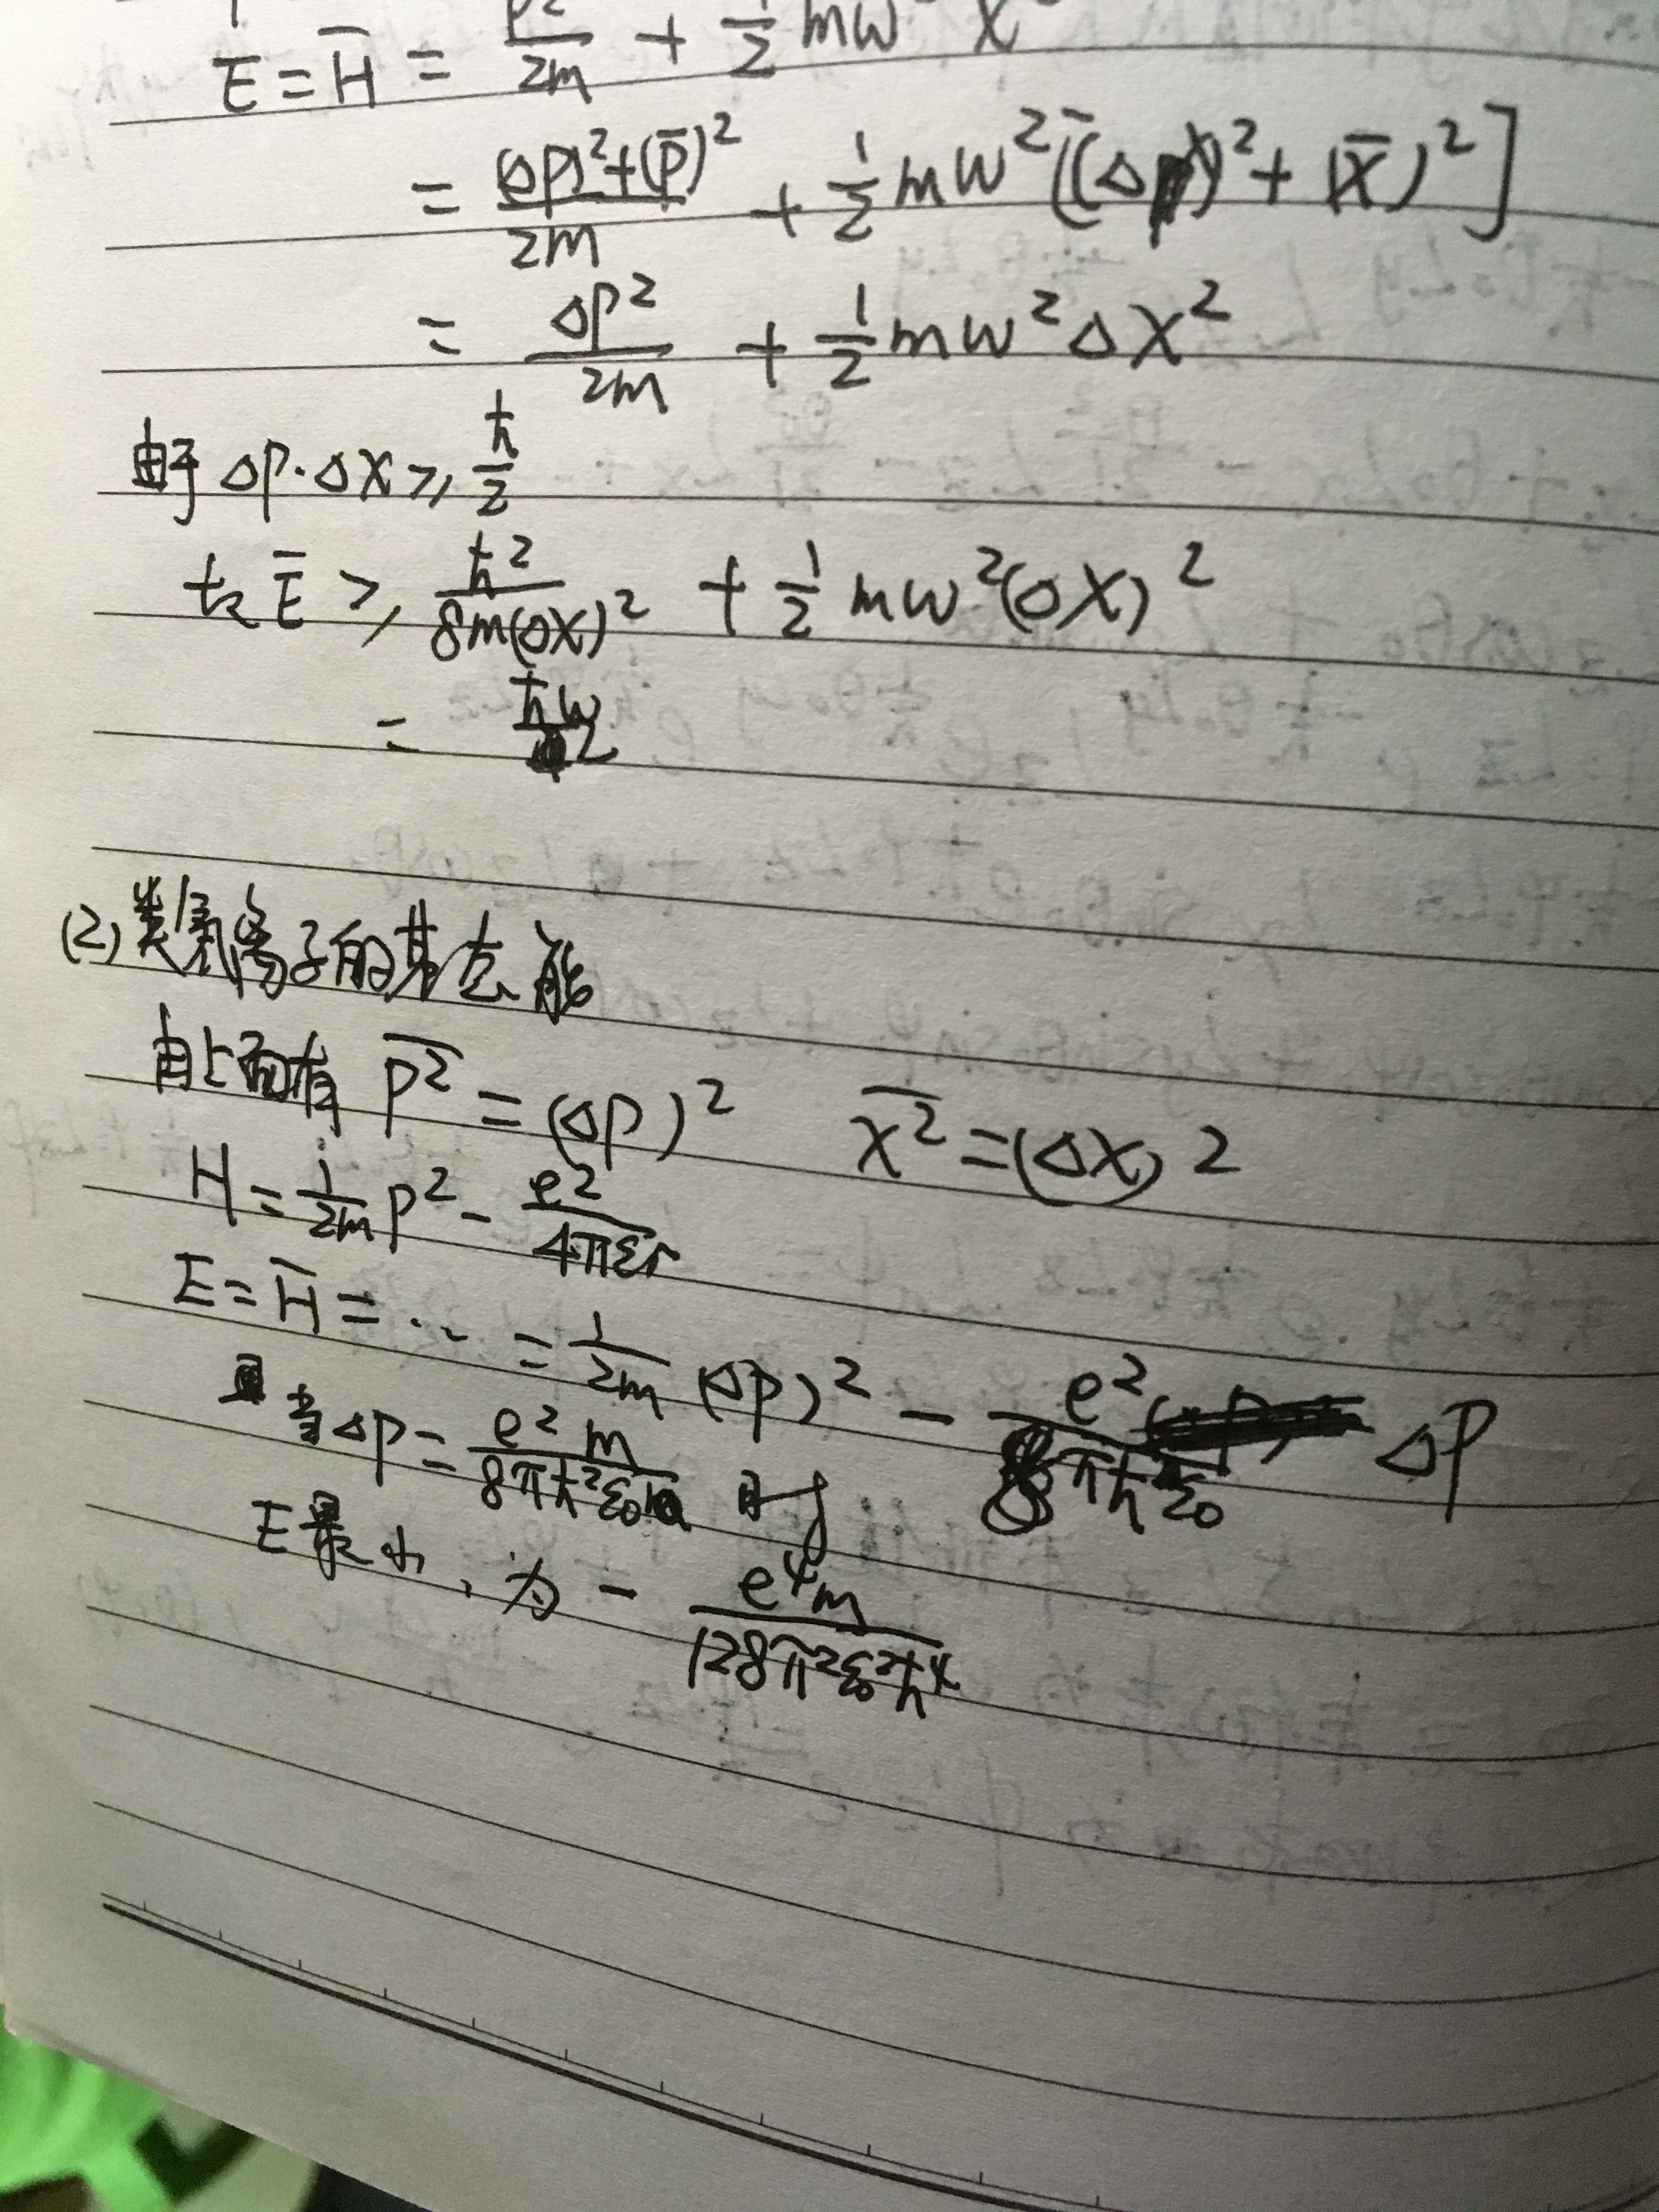 E = H̅ = p²/2m + 1/2 mω² x²
= (Δp)²+(p̅)²/2m + 1/2 mω² [(Δx)² + (x̅)²]
= Δp²/2m + 1/2 mω² Δx²
由于 Δp·Δx ≥ ħ/2
故 E̅ ≥ ħ²/8m(Δx)² + 1/2 mω²(Δx)²
= ħω/2
(2) 类氢离子的基态能
由上面有 p²̅ = (Δp)² x²̅ = (Δx)²
H = 1/2m p² - e²/4πεr
E = H̅ = ... = 1/2m (Δp)² - e²/8πħ²ε₀ Δp
当Δp = e²m/8πħ²ε₀ 时
E最小, 为 - e⁴m/128π²ε₀²ħ⁴